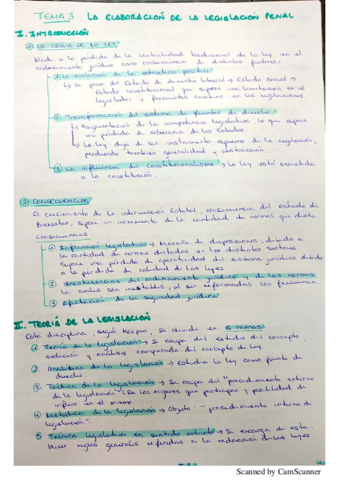 TEMA 3. LA ELABORACIÓN DE LA LEGISLACIÓN PENAL
I. INTRODUCCIÓN
① LA CRISIS DE LA LEY
Alude a la pérdida de la centralidad tradicional de la ley en el
ordenamiento jurídico como consecuencia de distintos factores:
① La evolución de la estructura política
↳ Se pasa del Estado de derecho liberal → Estado Social →
Estado constitucional que supone una limitación en el
legislador y frecuentes cambios en las legislaciones
② Transformación del sistema de fuentes de derecho
↳ Fragmentación de la competencia legislativa, lo que supone
una pérdida de soberanía de los Estados
↳ La ley deja de ser instrumento supremo de la regulación,
perdiendo también generalidad y abstracción.
③ La influencia del constitucionalismo → La ley está sometida
a la constitución.
② CONSECUENCIAS
El crecimiento de la intervención Estatal, consecuencia del Estado de
Bienestar, supone un incremento de la cantidad de normas que dicta
① Inflación legislativa → de disposiciones, debido a
la cantidad de normas dictadas en los distintos sectores
supone una pérdida de operatividad del sistema jurídico debido
a la pérdida de calidad de las leyes
② del ordenamiento jurídico y de las normas
la cuales son inestables, al ser reformadas con frecuencia
③ Afectación de la seguridad jurídica
II. TEORÍA DE LA LEGISLACIÓN
Esta disciplina, según Karpen, se divide en
① Teoría de la legislación → Se ocupa del estudio del concepto,
evolución y análisis comparado del concepto de ley
② Analítica de la legislación → Estudia la ley como fuente de
derecho.
③ Táctica de la legislación → Se ocupa del "procedimiento externo
de la legislación" (De los órganos que participan y posibilidad de
influir en el mismo.
④ Metódica de la legislación → Objeto: "procedimiento interno de
legislación".
⑤ Técnica legislativa en sentido estricto → Se encarga de esta-
blecer reglas generales referidas a la redacción de las leyes
Scanned by CamScanner